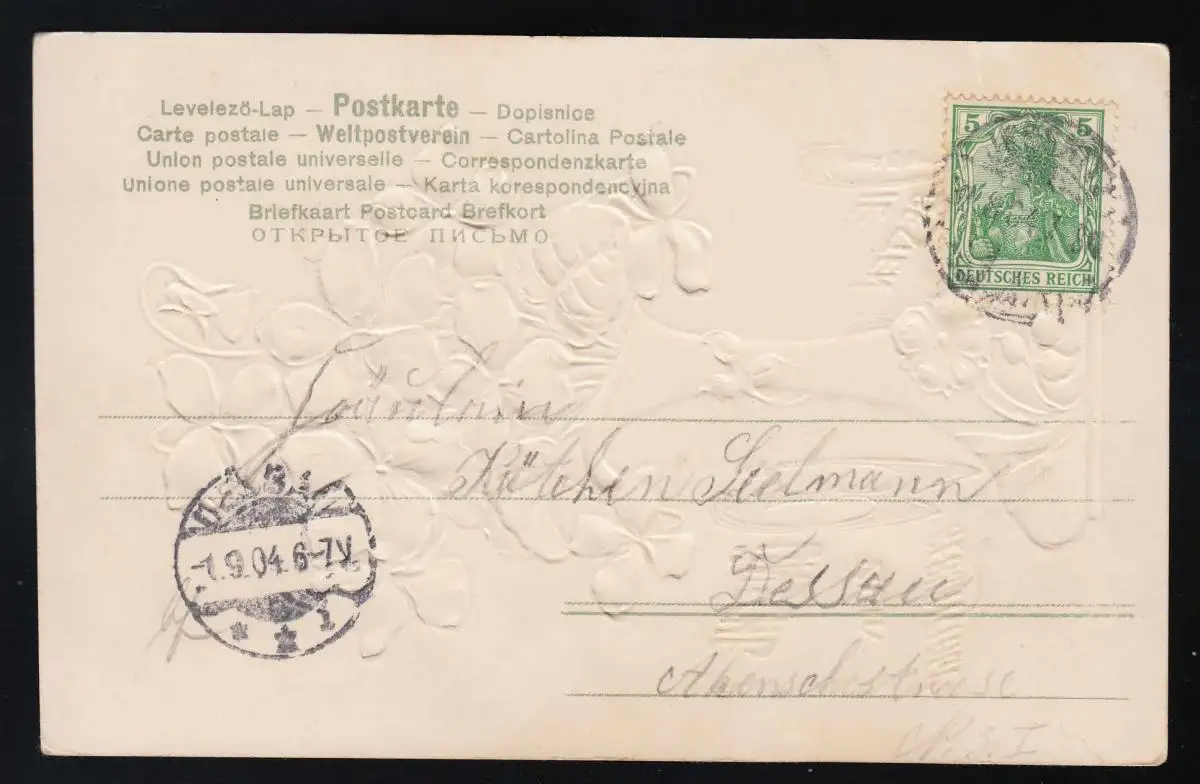 Levelező-Lap – Postkarte – Dopisnice
Carte postale – Weltpostverein – Cartolina Postale
Union postale universelle – Correspondenzkarte
Unione postale universale – Karta korespondencyjna
Briefkaart Postcard Brefkort
ОТКРЫТОЕ ПИСЬМО
5 5
DEUTSCHES REICH
Fräulein
Kätchen Seelmann
Dessau
DESSAU
1.9.04. 6-7V.
* * 1